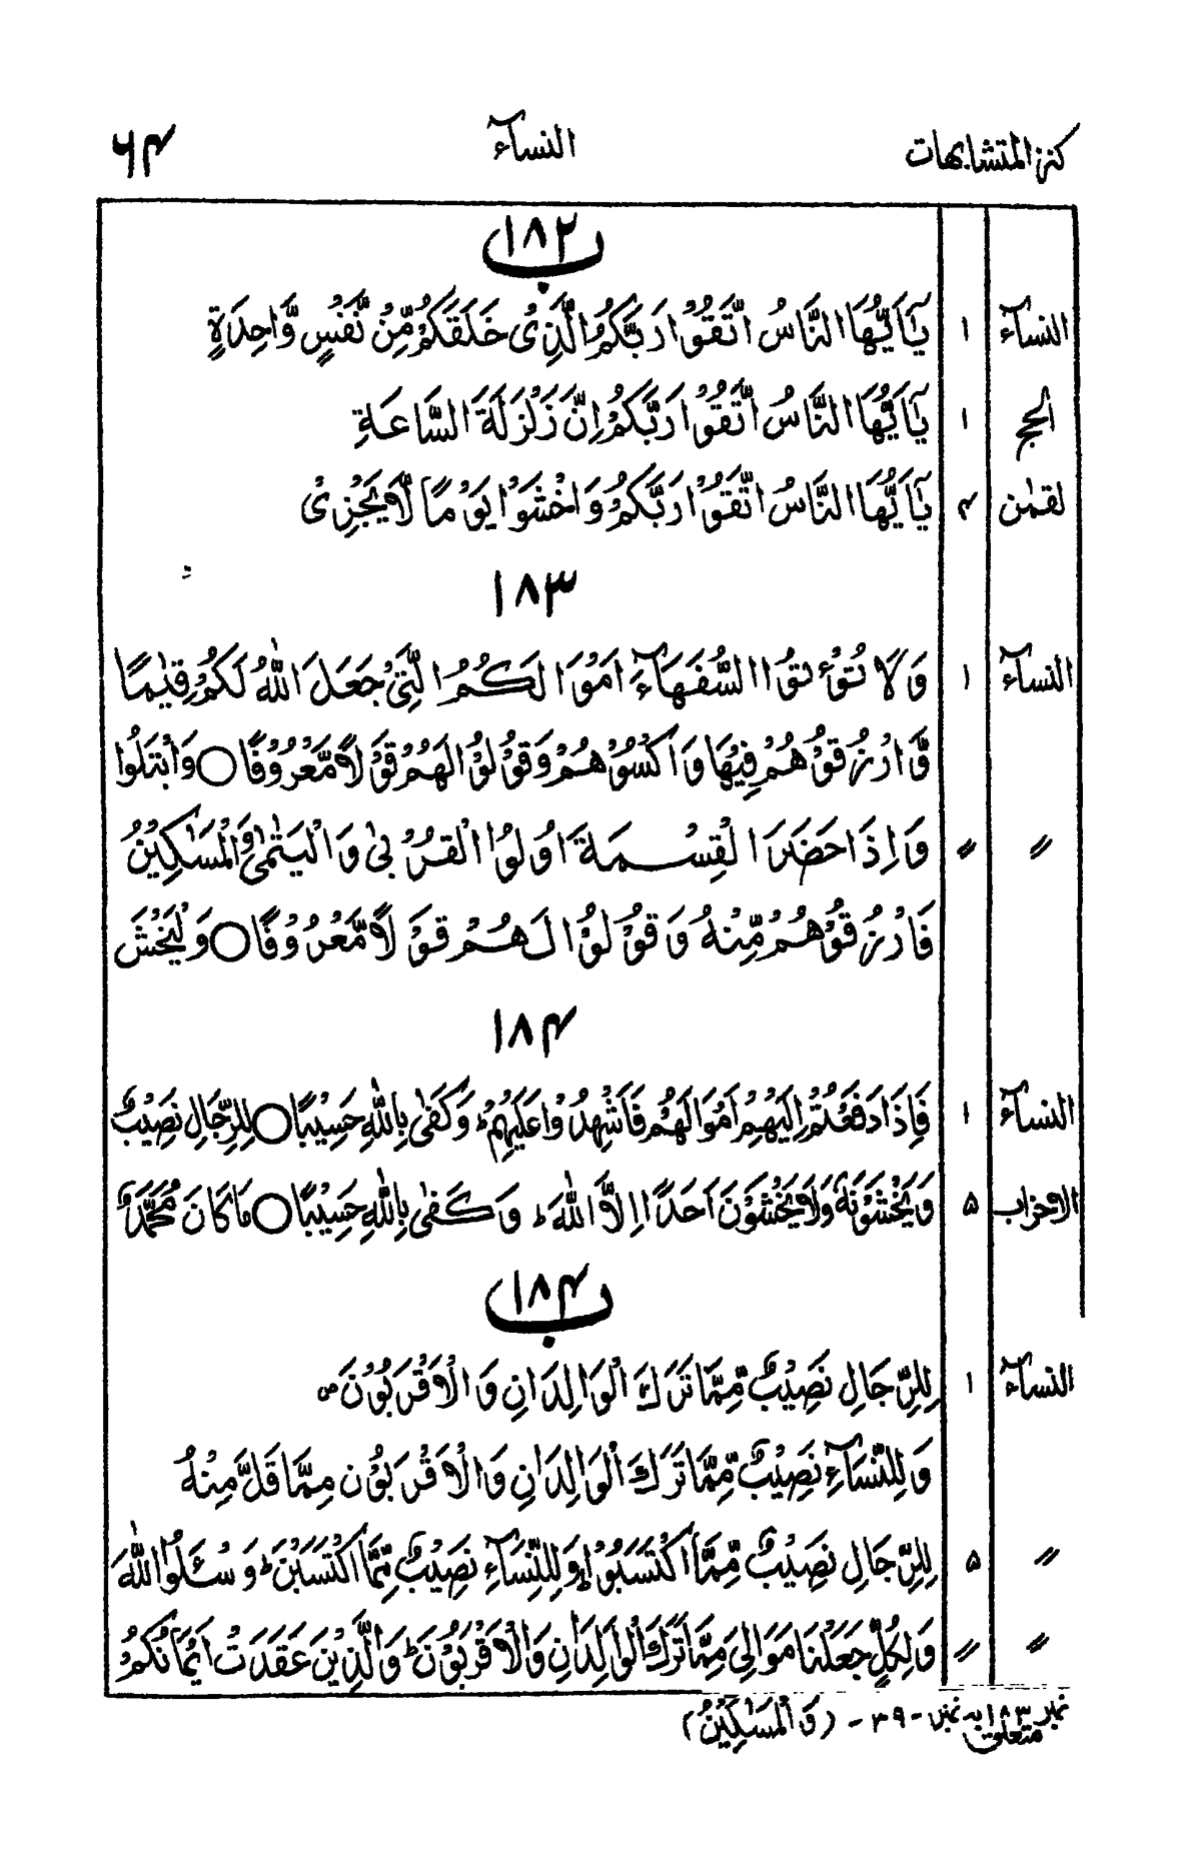 كنز المتشابهات النسآء ٦٤
١٨٢ ب
النسآء ١ يٰۤاَيُّهَا النَّاسُ اتَّقُوْا رَبَّكُمُ الَّذِىْ خَلَقَكُمْ مِّنْ نَّفْسٍ وَّاحِدَةٍ
الحج ١ يٰۤاَيُّهَا النَّاسُ اتَّقُوْا رَبَّكُمْ اِنَّ زَلْزَلَةَ السَّاعَةِ
لقمٰن ۴ يٰۤاَيُّهَا النَّاسُ اتَّقُوْا رَبَّكُمْ وَاخْشَوْا يَوْمًا لَّا يَجْزِىْ
١٨٣
النسآء ١ وَلَا تُؤْتُوا السُّفَهَآءَ اَمْوَالَكُمُ الَّتِىْ جَعَلَ اللّٰهُ لَكُمْ قِيٰمًا
وَّارْزُقُوْهُمْ فِيْهَا وَاكْسُوْهُمْ وَقُوْلُوْا لَهُمْ قَوْلًا مَّعْرُوْفًا ○ وَابْتَلُوا
〃 〃 وَاِذَا حَضَرَ الْقِسْمَةَ اُولُوا الْقُرْبٰى وَالْيَتٰمٰى وَالْمَسٰكِيْنُ
فَارْزُقُوْهُمْ مِّنْهُ وَقُوْلُوْا لَهُمْ قَوْلًا مَّعْرُوْفًا ○ وَلْيَخْشَ
١٨۴
النسآء ١ فَاِذَا دَفَعْتُمْ اِلَيْهِمْ اَمْوَالَهُمْ فَاَشْهِدُوْا عَلَيْهِمْ ؕ وَكَفٰى بِاللّٰهِ حَسِيْبًا ○ لِلرِّجَالِ نَصِيْبٌ
الاحزاب ۵ وَيَخْشَوْنَهٗ وَلَا يَخْشَوْنَ اَحَدًا اِلَّا اللّٰهَ ؕ وَكَفٰى بِاللّٰهِ حَسِيْبًا ○ مَا كَانَ مُحَمَّدٌ
١٨۴ ب
النسآء ١ لِلرِّجَالِ نَصِيْبٌ مِّمَّا تَرَكَ الْوَالِدَانِ وَالْاَقْرَبُوْنَ ص
وَلِلنِّسَآءِ نَصِيْبٌ مِّمَّا تَرَكَ الْوَالِدَانِ وَالْاَقْرَبُوْنَ مِمَّا قَلَّ مِنْهُ
〃 ۵ لِلرِّجَالِ نَصِيْبٌ مِّمَّا اكْتَسَبُوْا ؕ وَلِلنِّسَآءِ نَصِيْبٌ مِّمَّا اكْتَسَبْنَ ؕ وَسْئَلُوا اللّٰهَ
〃 〃 وَلِكُلٍّ جَعَلْنَا مَوَالِىَ مِمَّا تَرَكَ الْوَالِدَانِ وَالْاَقْرَبُوْنَ ؕ وَالَّذِيْنَ عَقَدَتْ اَيْمَانُكُمْ
نمبر ١٨٣ متعلق بہ نمبر - ٣٩ - (وَالْمَسٰكِيْنُ)